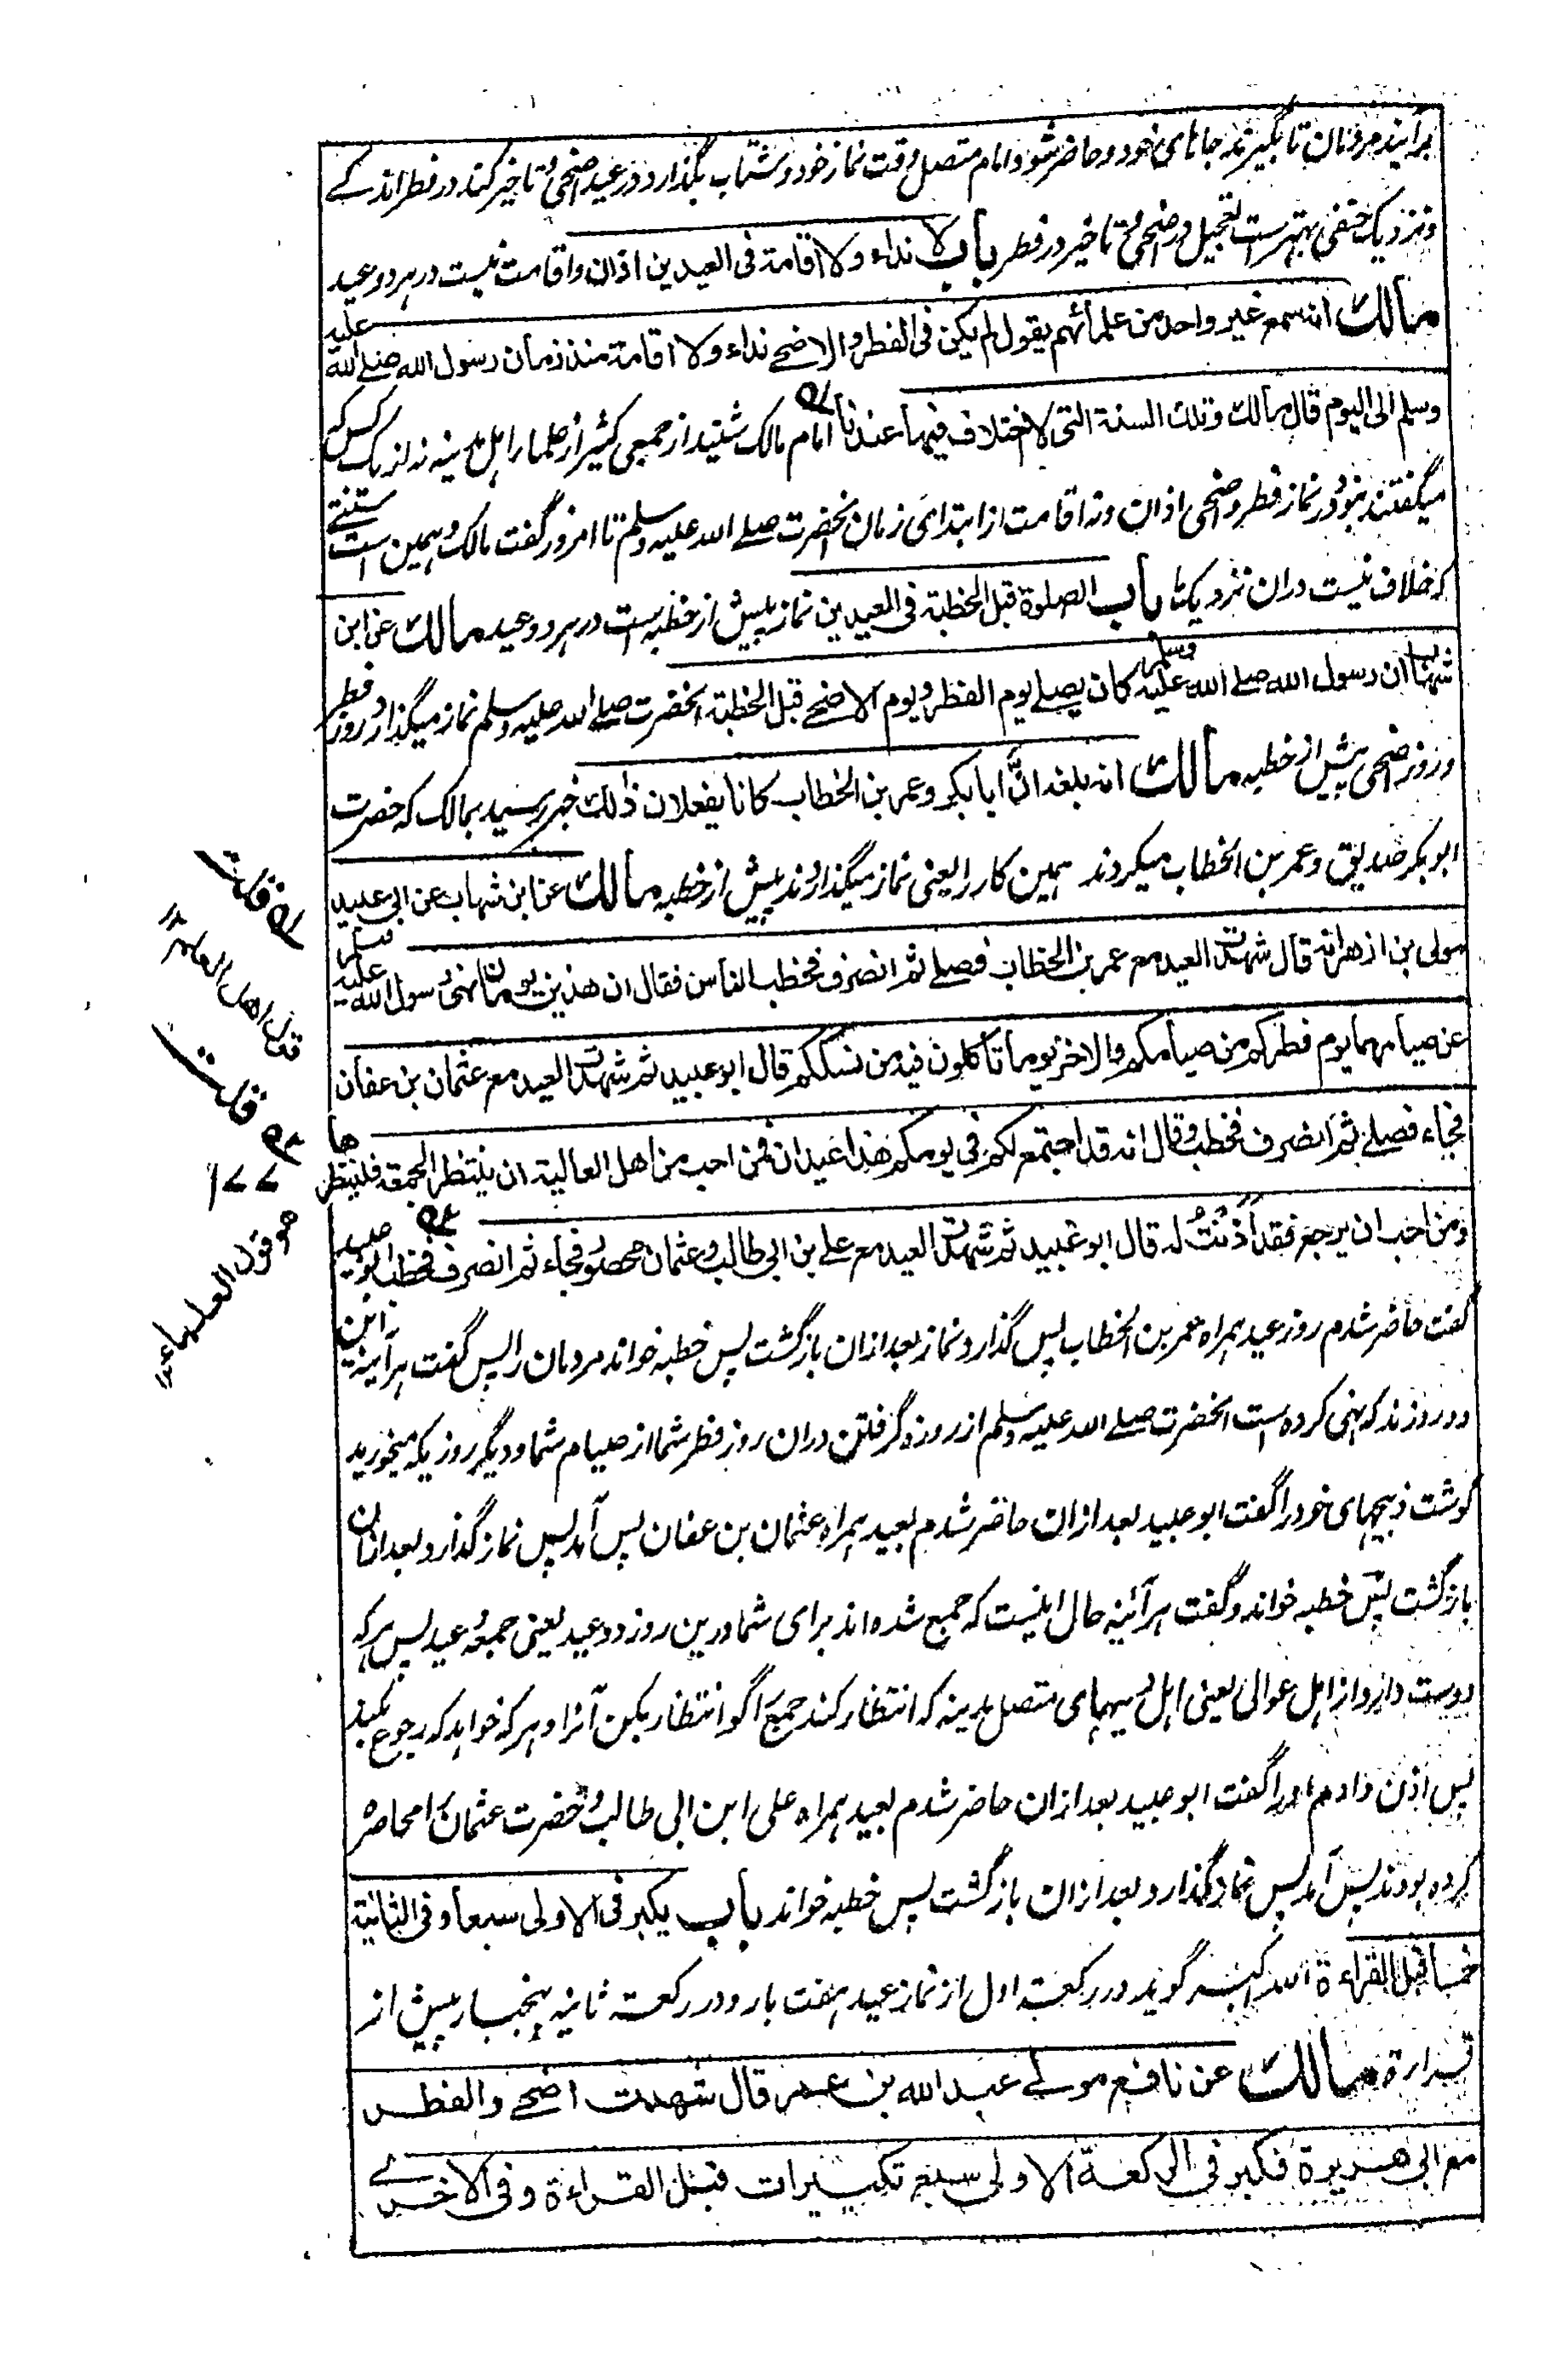 برآیند مردمان تا بگیرند جاهای خود و حاضر شود امام متصل وقت نماز خود و شتاب بگذارد در عید اضحی و تاخیر کند در فطر اندکے
و نزدیک حنفی بهتر است تعجیل در اضحی و تاخیر در فطر باب لا نداء ولا اقامة فی العیدین اذان و اقامت نیست در هر دو عید
مالك انه سمع غیر واحد من علمائهم یقول لم یکن فی الفطر والاضحے نداء ولا اقامة منذ زمان رسول الله صلے الله علیه
وسلم الی الیوم قال مالك وتلك السنة التی لا اختلاف فیها عندنا امام مالک شنید از جمعی کثیر از علماء اهل مدینه نه از یک کس که
میگفتند نبود در نماز فطر و اضحی اذان و نه اقامت از ابتدای زمان آنحضرت صلے الله علیه وسلم تا امروز گفت مالک و همین است سنتے
که خلاف نیست در آن نزدیک ما باب الصلوة قبل الخطبة فی العیدین نماز پیش از خطبه است در هر دو عید مالك عن ابن
شهاب ان رسول الله صلے الله علیه وسلم کان یصلے یوم الفطر و یوم الاضحے قبل الخطبة آنحضرت صلے الله علیه وسلم نماز میگذارد روز فطر
و روز اضحی پیش از خطبه مالك انه بلغه انّ ابا بکر وعمر بن الخطاب کانا یفعلان ذلك خبر رسید بمالک که حضرت
ابوبکر صدیق و عمر بن الخطاب میکردند همین کار را یعنی نماز میگذاردند پیش از خطبه مالك عن ابن شهاب عن ابی عبید
مولی بن ازهر انه قال شهدت العید مع عمر بن الخطاب فصلے ثم انصرف فخطب الناس فقال ان هذین یومان نهی رسول الله علیه وسلم
عن صیامهما یوم فطرکم من صیامکم والاخر یوما تاکلون فیه من نسککم قال ابو عبید ثم شهدت العید مع عثمان بن عفان
فجاء فصلے ثم انصرف فخطب وقال انه قد اجتمع لکم فی یومکم هذا عیدان فمن احب من اهل العالیة ان ینتظر الجمعة فلینتظرها
ومن احب ان یرجع فقد اَذِنْتُ له قال ابو عبید ثم شهدت العید مع علے بن ابی طالب و عثمان محصور فجاء ثم انصرف فخطب ابو عبید
گفت حاضر شدم روز عید همراه عمر بن الخطاب پس گذارد نماز بعد از ان بازگشت پس خطبه خواند مردمان را پس گفت هر آئینه این
دو روزند که نهی کرده است آنحضرت صلے الله علیه وسلم از روزه گرفتن در ان روز فطر شما از صیام شما و دیگر روزیکه میخورید
گوشت ذبیحهای خود را گفت ابو عبید بعد از ان حاضر شدم بعید همراه عثمان بن عفان پس آمد پس نماز گذارد بعد ازان
بازگشت پس خطبه خواند و گفت هر آئینه حال اینست که جمع شده اند برای شما درین روز دو عید یعنی جمعه و عید پس هر که
دوست دارد از اهل عوالی یعنی اهل دیههای متصل مدینه که انتظار کند جمعه را گو انتظار بکن آنرا و هر که خواهد که رجوع کند
پس اذن دادم او را گفت ابو عبید بعد از ان حاضر شدم بعید همراه علی ابن ابی طالب و حضرت عثمان را محاصره
کرده بودند پس آمد پس نماز گذارد و بعد از ان بازگشت پس خطبه خواند باب یکبر فی الاولی سبعا و فی الثانیة
خمسا قبل القراءة الله اکبر گوید در رکعت اول از نماز عید هفت بار و در رکعت ثانیه پنجبار پیش از
قراءة مالك عن نافع مولے عبد الله بن عمر قال شهدت اضحے والفطر
مع ابی هریرة فکبر فی الرکعة الاولی سبع تکبیرات قبل القراءة و فی الاخرے
قلت
اهل العلم ١٢
قلت
هو قول العلماء